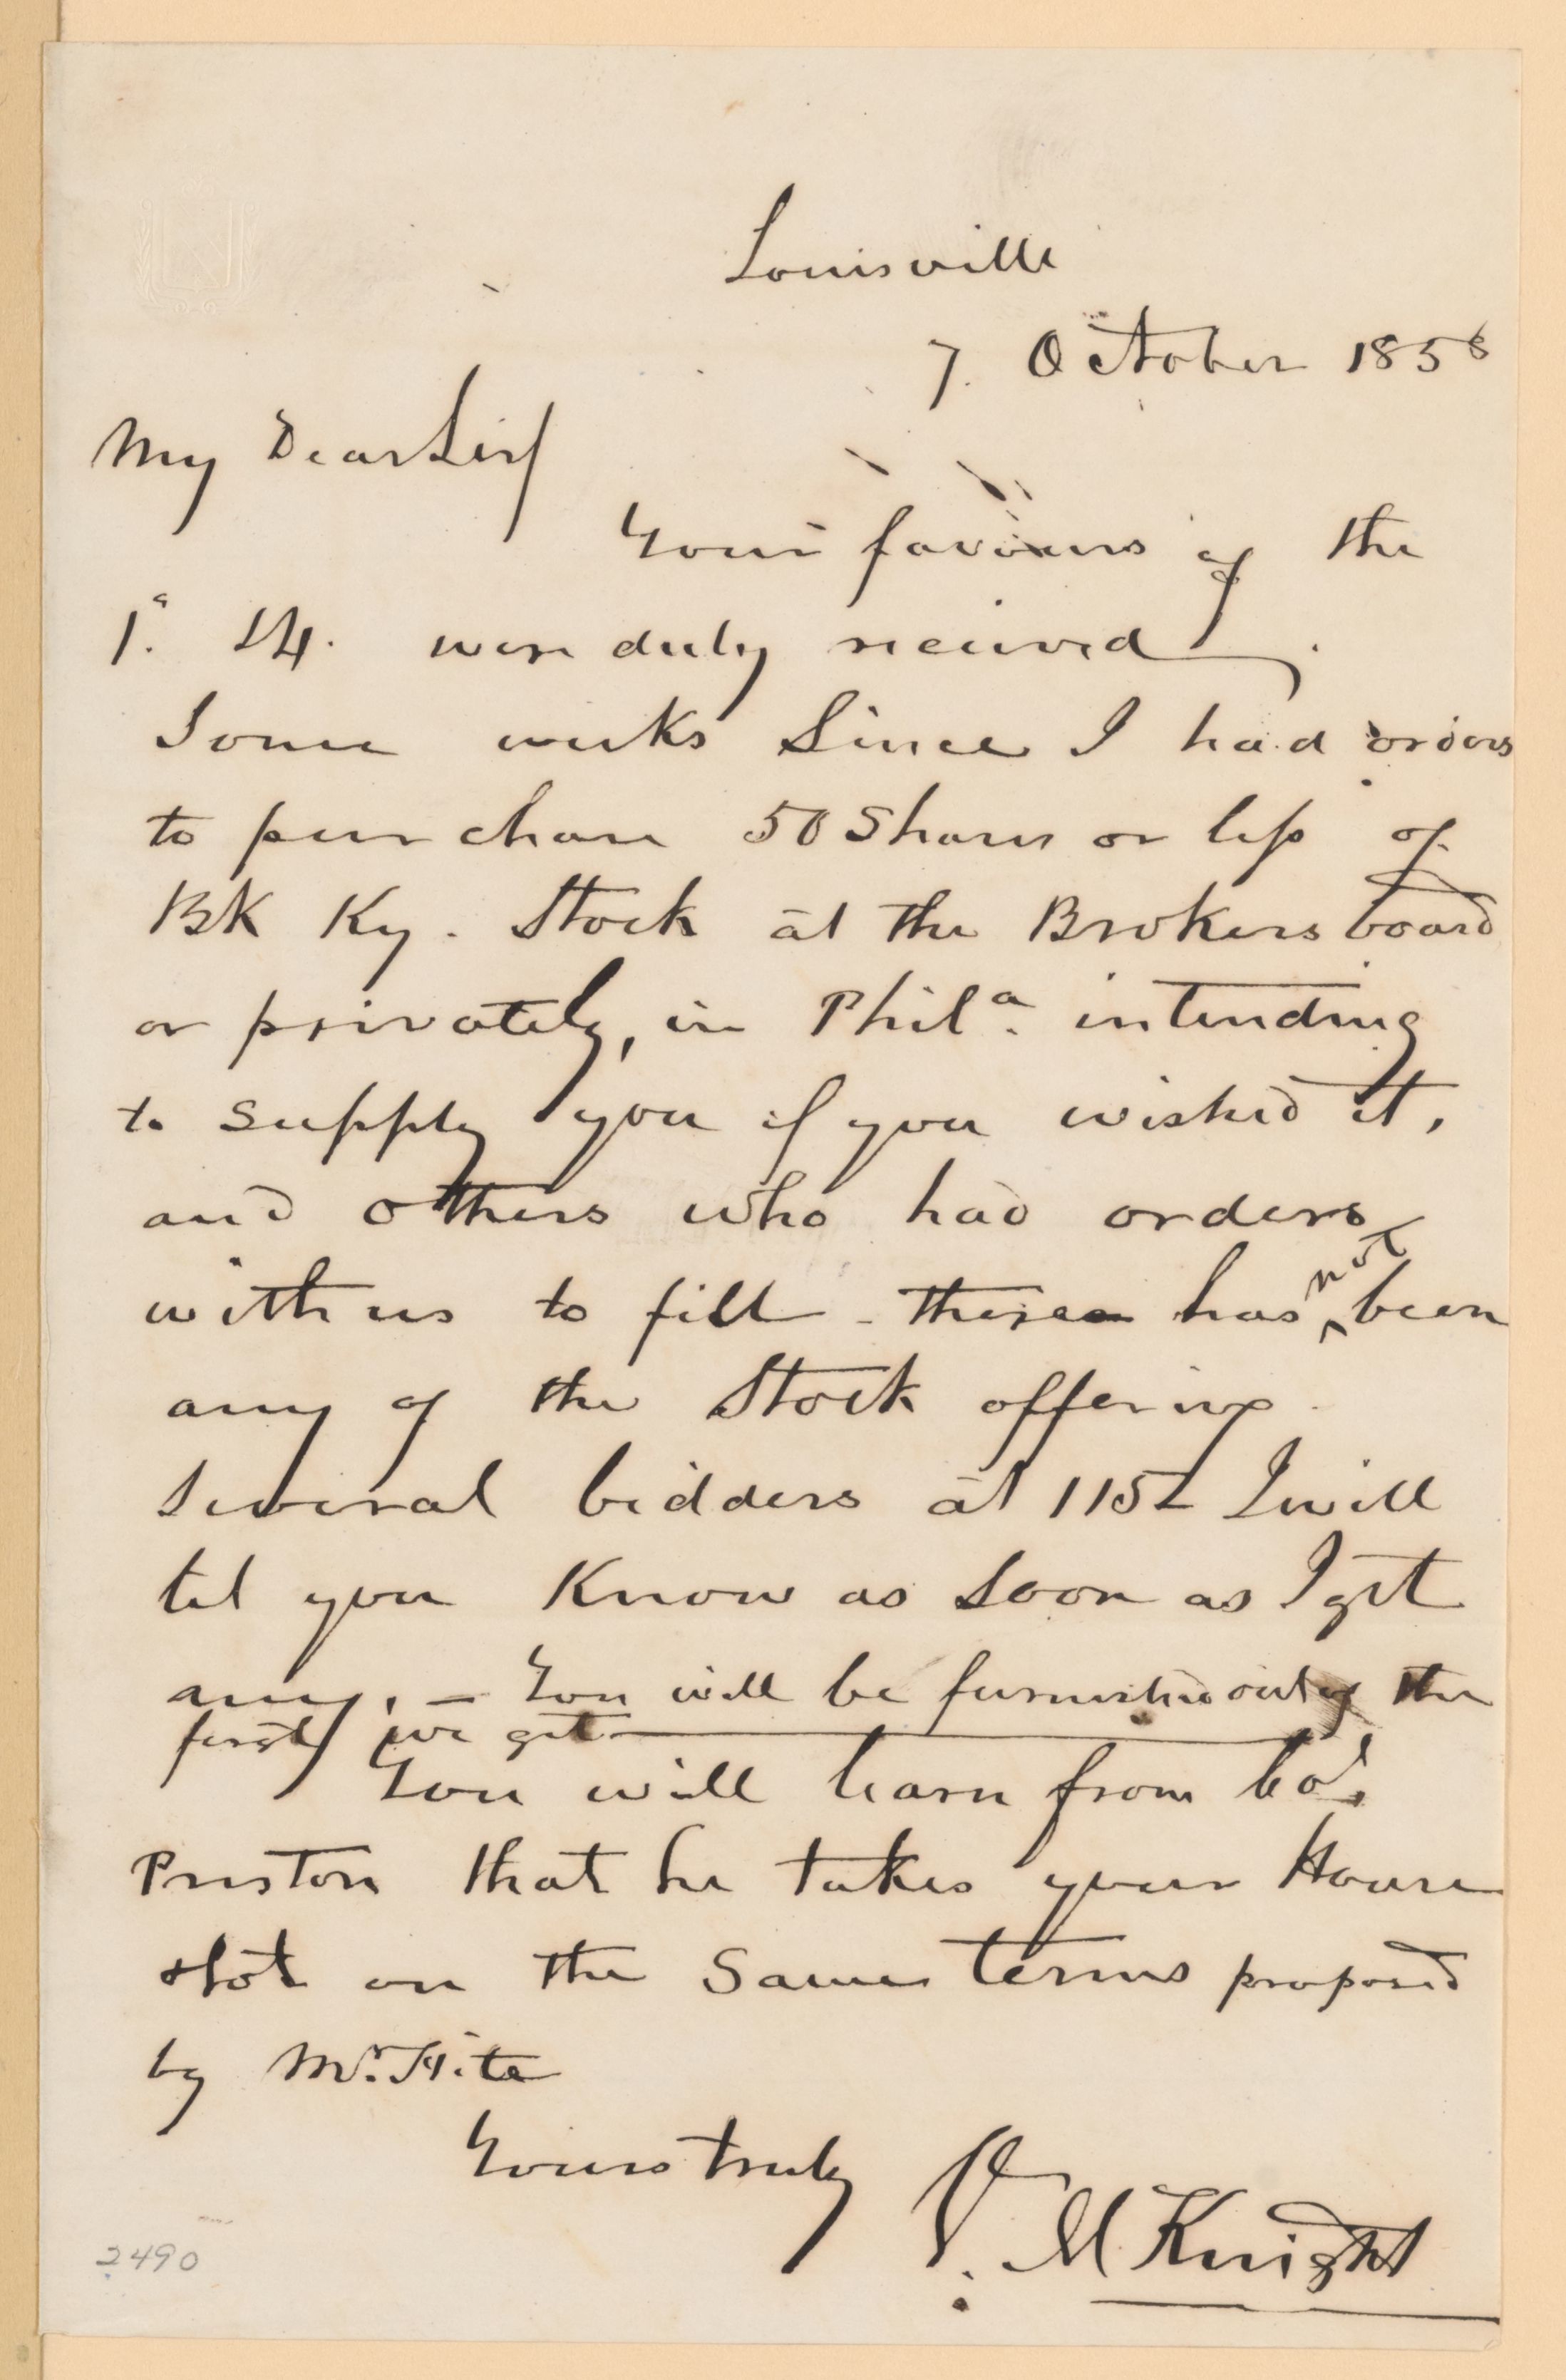 Louisville
7. October 1856
My Dear Sir/
Your favours of the
1. & 4. were duly received.
Some weeks since I had orders
to purchase 50 Shares or less of
BK Ky. Stock at the Brokers board
or privately, in Phila. intending
to supply you if you wished it,
and others who had orders
with us to fill - there has not been
any of the Stock offering.
Several bidders at 115 I will
let you Know as soon as I get
any. - You will be furnished out of the
first we get
You will learn from Col.
Preston that he takes your House
& lot on the Same terms proposed
by Mr. Hite
Yours truly
V. McKnight
2490